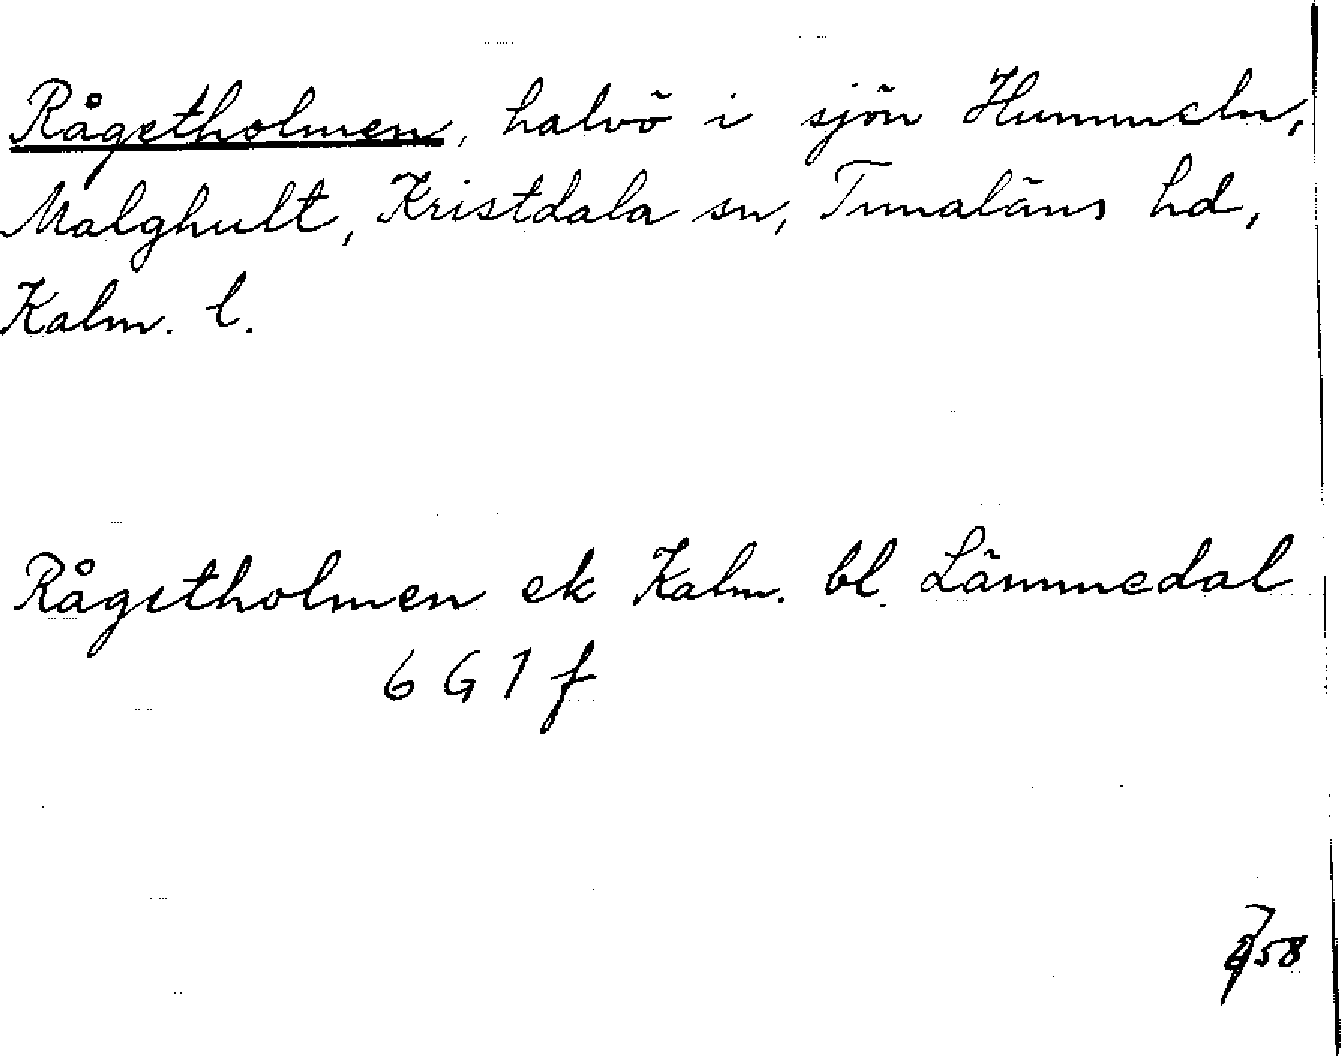 Rågetholmen, halvö i sjön Hummeln,
Malghult, Kristdala sn, Tunaläns hd,
Kalm. l.
Rågetholmen ek Kalm. bl. Lämmedal
6 G 1 f
58